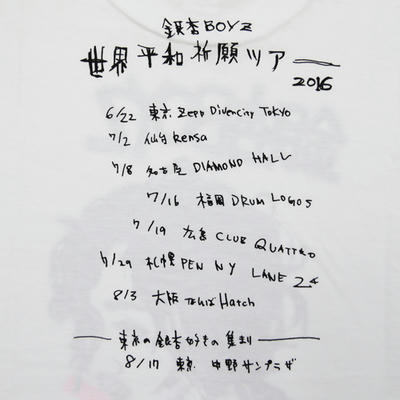 銀杏BOYZ
世界平和祈願ツアー
2016
6/22 東京 Zepp Divercity Tokyo
7/2 仙台 Rensa
7/8 名古屋 DIAMOND HALL
7/16 福岡 DRUM LOGOS
7/19 広島 CLUB QUATTRO
7/29 札幌 PENNY LANE 24
8/3 大阪 なんば Hatch
東京の銀杏好きの集まり
8/17 東京 中野サンプラザ